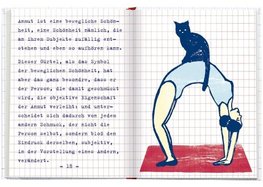 Anmut ist eine bewegliche Schön-
heit, eine Schönheit nämlich, die
an ihrem Subjekte zufällig ent-
stehen und eben so aufhören kann.
Dieser Gürtel, als das Symbol
der beweglichen Schönheit, hat
aber das ganz besondre, dass er
der Person, die damit geschmückt
wird, die objektive Eigenschaft
der Anmut verleiht; und unter-
scheidet sich dadurch von jedem
andern Schmuck, der nicht die
Person selbst, sondern bloß den
Eindruck derselben, subjektiv,
in der Vorstellung eines Andern,
verändert.
- 18 -